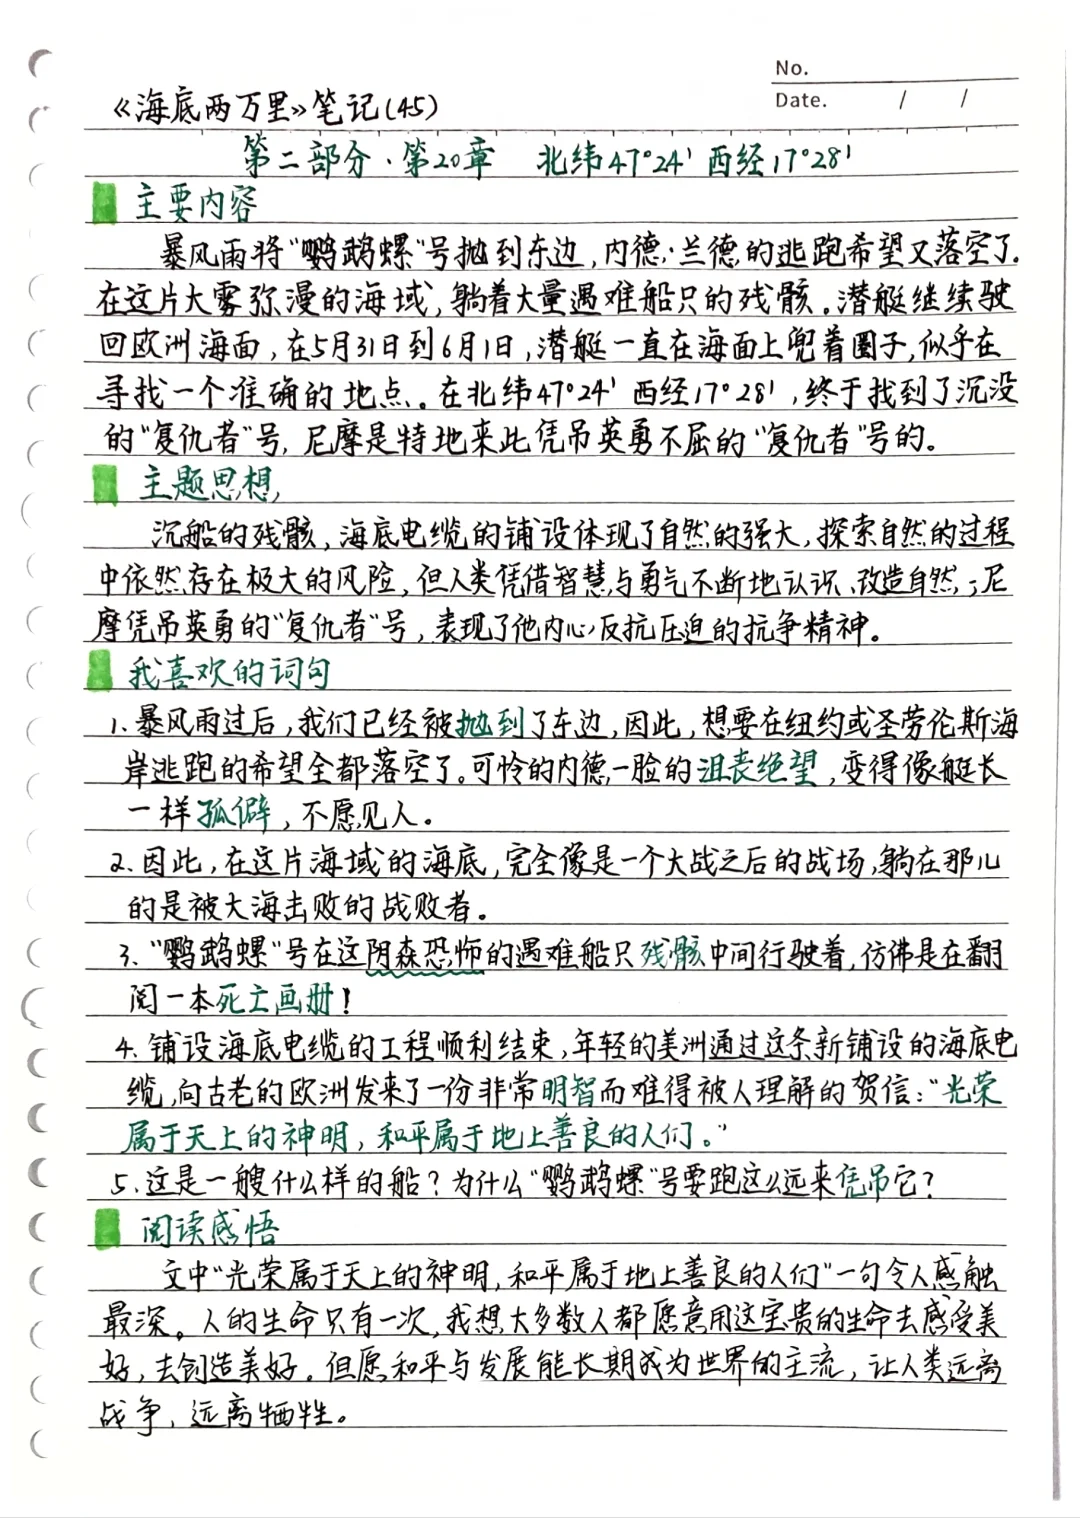 No.
《海底两万里》笔记(45)
Date. / /
第二部分·第20章 北纬47°24' 西经17°28'
主要内容
暴风雨将"鹦鹉螺"号抛到东边,内德·兰德的逃跑希望又落空了.
在这片大雾弥漫的海域,躺着大量遇难船只的残骸。潜艇继续驶
回欧洲海面,在5月31日到6月1日,潜艇一直在海面上兜着圈子,似乎在
寻找一个准确的地点。在北纬47°24' 西经17°28',终于找到了沉没
的"复仇者"号,尼摩是特地来此凭吊英勇不屈的"复仇者"号的。
主题思想
沉船的残骸,海底电缆的铺设体现了自然的强大,探索自然的过程
中依然存在极大的风险,但人类凭借智慧与勇气不断地认识、改造自然;尼
摩凭吊英勇的"复仇者"号,表现了他内心反抗压迫的抗争精神。
我喜欢的词句
1.暴风雨过后,我们已经被抛到了东边,因此,想要在纽约或圣劳伦斯海
岸逃跑的希望全都落空了。可怜的内德一脸的沮丧绝望,变得像艇长
一样孤僻,不愿见人。
2.因此,在这片海域的海底,完全像是一个大战之后的战场,躺在那儿
的是被大海击败的战败者。
3."鹦鹉螺"号在这阴森恐怖的遇难船只残骸中间行驶着,仿佛是在翻
阅一本死亡画册!
4.铺设海底电缆的工程顺利结束,年轻的美洲通过这条新铺设的海底电
缆,向古老的欧洲发来了一份非常明智而难得被人理解的贺信:"光荣
属于天上的神明,和平属于地上善良的人们。"
5.这是一艘什么样的船?为什么"鹦鹉螺"号要跑这么远来凭吊它?
阅读感悟
文中"光荣属于天上的神明,和平属于地上善良的人们"一句令人感触
最深。人的生命只有一次,我想大多数人都愿意用这宝贵的生命去感受美
好,去创造美好。但愿和平与发展能长期成为世界的主流,让人类远离
战争,远离牺牲。